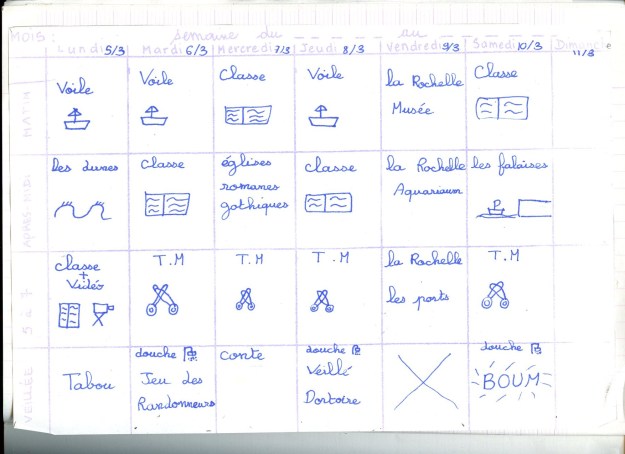 MOIS: Semaine du _ _ _ _ au _ _ _ _
Lundi 5/3 Mardi 6/3 Mercredi 7/3 Jeudi 8/3 Vendredi 9/3 Samedi 10/3 Dimanche 11/3
MATIN
Voile
Voile
Classe
Voile
la Rochelle
Musée
Classe
APRÈS-MIDI
Les dunes
Classe
églises
romanes
gothiques
Classe
la Rochelle
Aquarium
les falaises
5 à 7
Classe
+
Vidéo
T.M
T.M
T.M
la Rochelle
les ports
T.M
VEILLÉE
Tabou
douche
Jeu des
Randonneurs
conte
douche
Veillé
Dortoire
douche
BOUM